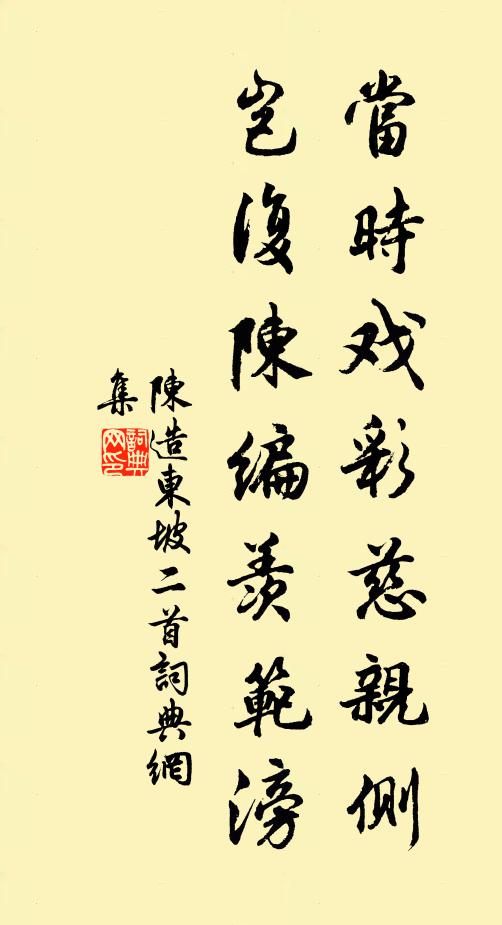 當時戏彩慈親側
岂復陳編羨範滂
陳造東坡二首詞典網
集
詞典网印